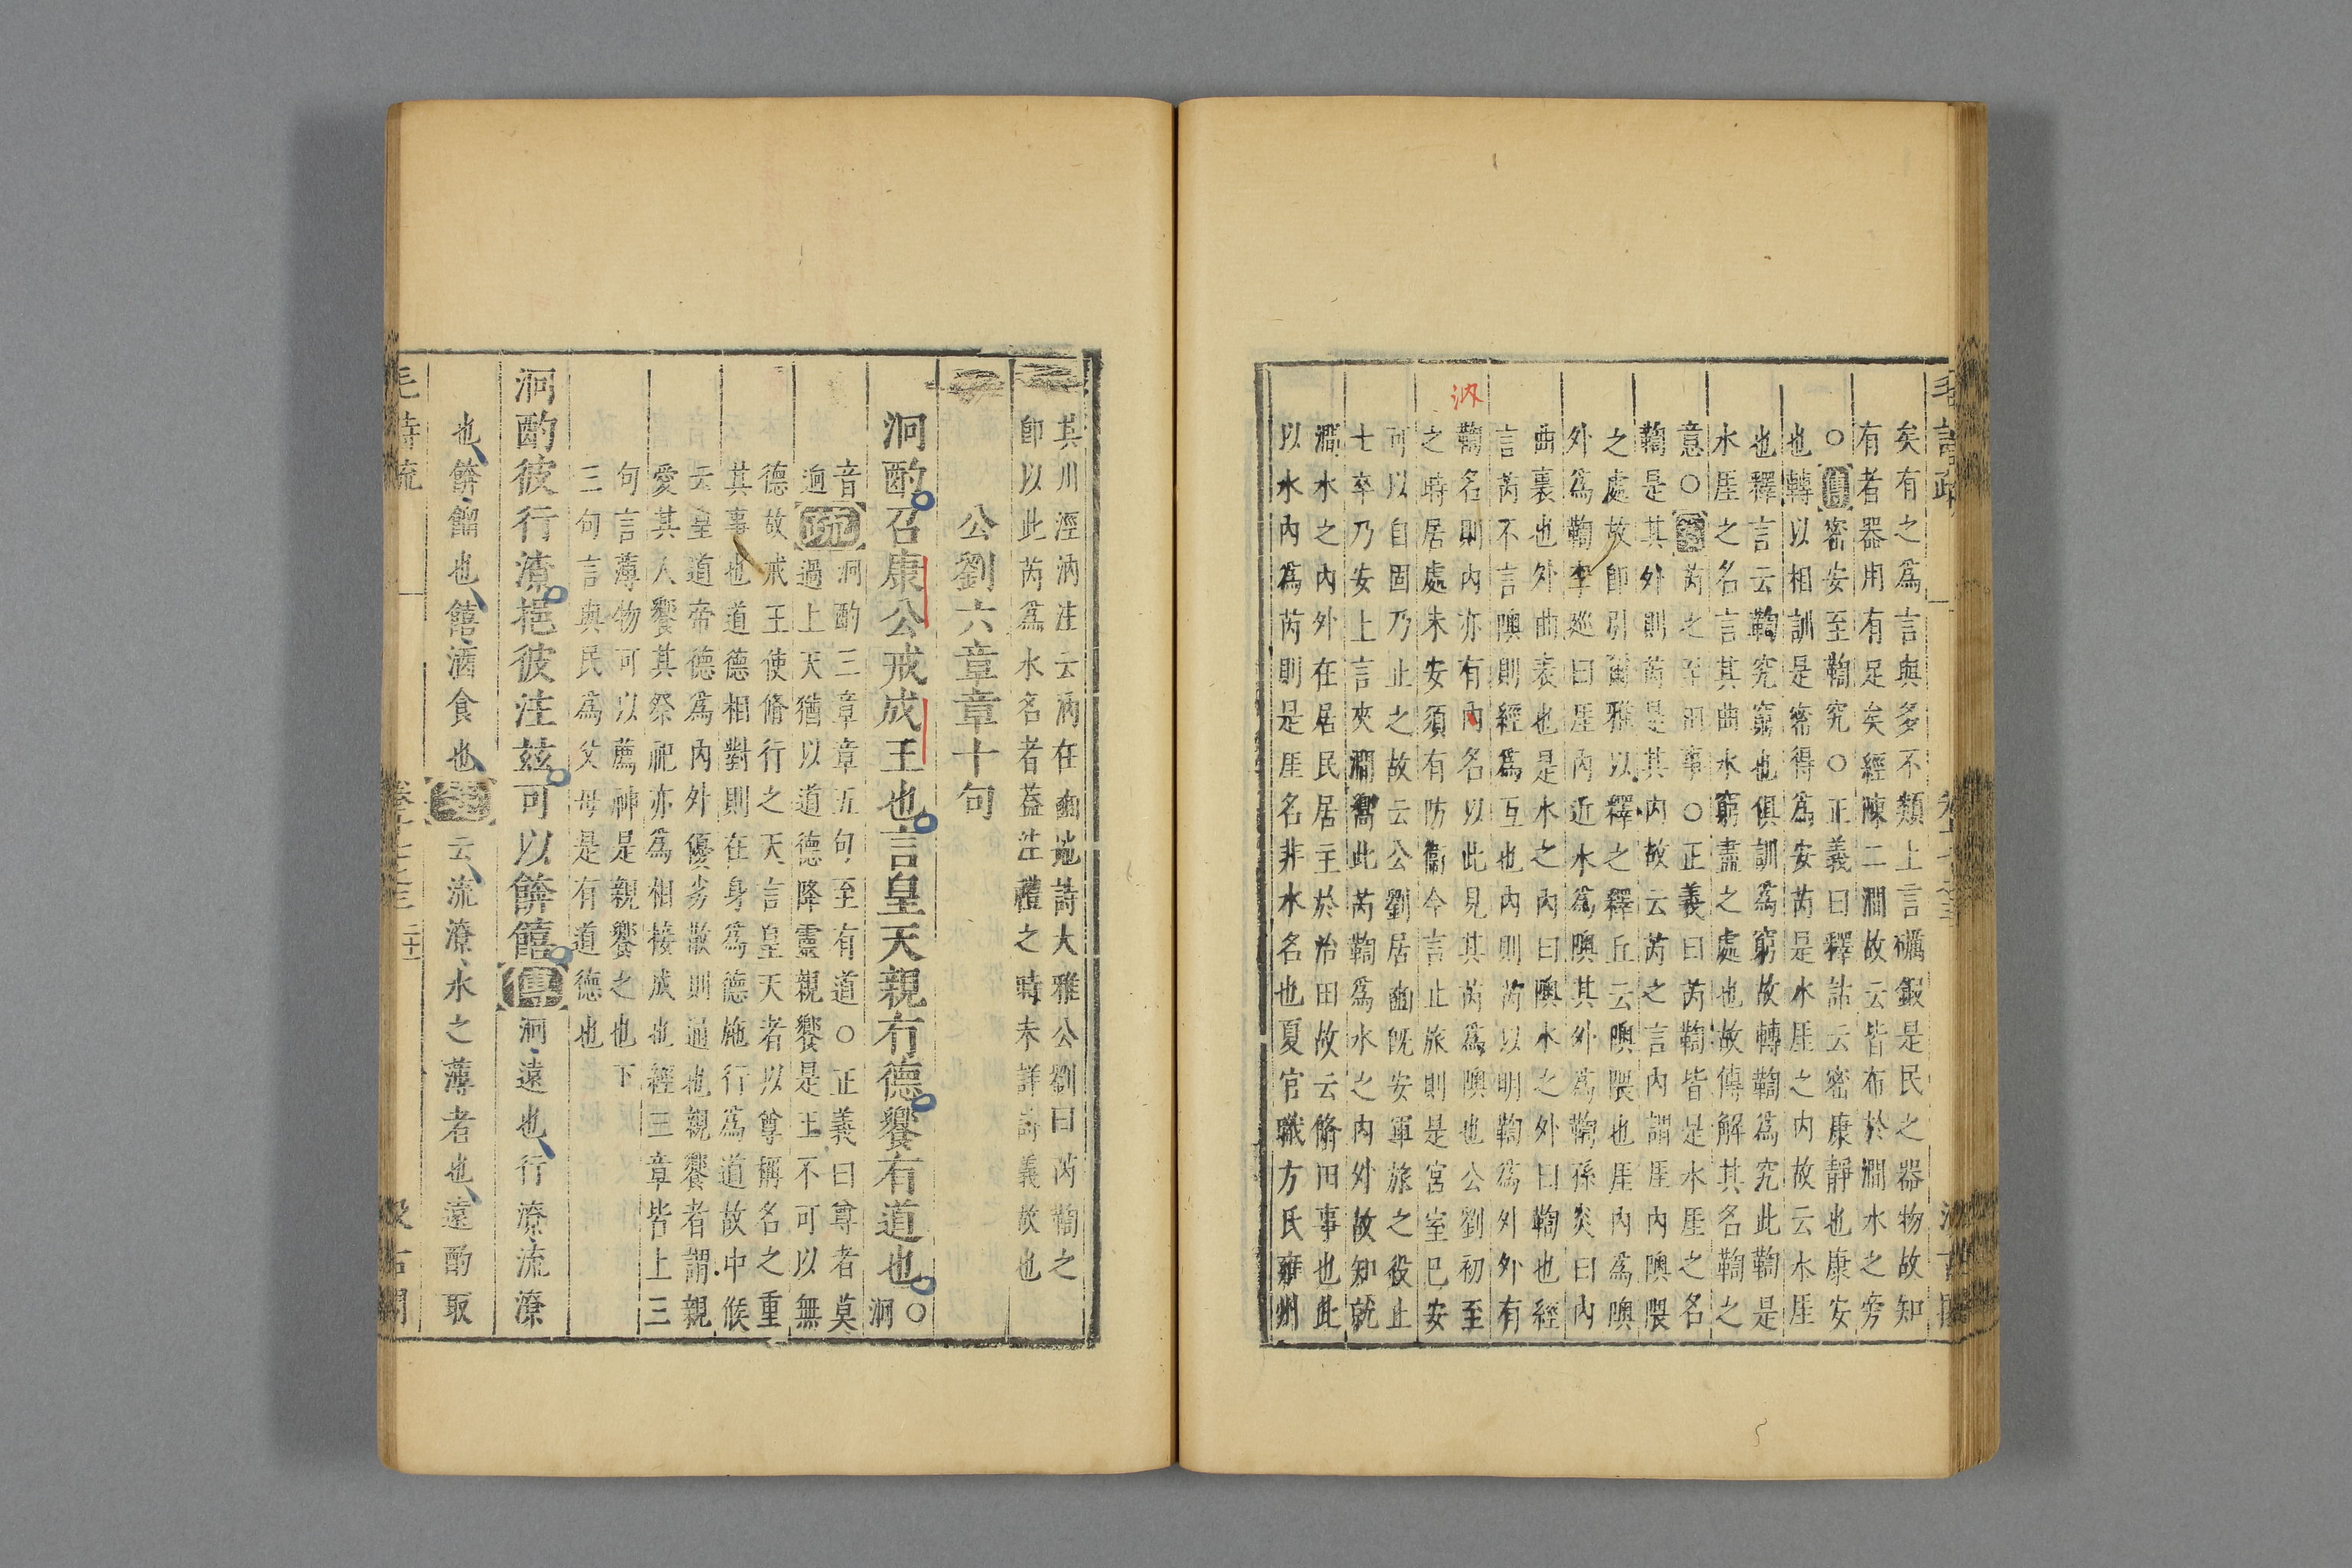 毛詩疏
矣有之爲言與多不類上言礪鍛是民之器物故知
有者器用有足矣經陳二澗故云皆布於澗水之旁
○傳密安至鞫究○正義曰釋詁云密康靜也康安
也轉以相訓是密得爲安芮是水厓之内故云水厓
也釋言云鞫究窮也俱訓爲窮故轉鞫爲究此鞫是
水厓之名言其曲水窮盡之處也故傳解其名鞫之
意○芮之至田事○正義曰芮鞫皆是水厓之名
鞫是其外則芮是其内故云芮之言内謂厓内隩隈
之處故卽引爾雅以釋之釋丘云隩隈也厓内爲隩
外爲鞫李巡曰厓内近水爲隩其外爲鞫孫炎曰内
曲裏也外曲表也是水之内曰隩水之外曰鞫也經
言芮不言隩則經爲互也内則芮以明鞫爲外外有
鞫名則内亦有内名以此見其芮爲隩也公劉初至
汭
之時居處未安須有防衞今言止旅則是宮室已安
可以自固乃止之故云公劉居豳旣安軍旅之役止
士卒乃安上言夾澗嚮此芮鞫爲水之内外故知就
澗水之内外在居民居主於治田故云脩田事也此
以水内爲芮則是厓名非水名也夏官職方氏雍州
其川涇汭注云汭在豳地詩大雅公劉曰芮鞫之
卽以此芮爲水名者蓋注禮之時未詳詩義故也
公劉六章章十句
泂酌召康公戒成王也言皇天親有德饗有道也○泂
音
迥疏泂酌三章章五句至有道○正義曰尊者莫
過上天猶以道德降靈親饗是王不可以無
德故戒王使脩行之天言皇天者以尊稱名之重
其事也道德相對則在身爲德施行爲道故中候
云皇道帝德爲内外優劣散則通也親饗者謂親
愛其人饗其祭祀亦爲相接成也經三章皆上三
句言薄物可以薦神是親饗之也下
三句言與民爲父母是有道德也
泂酌彼行潦挹彼注兹可以餴饎傳泂遠也行潦流潦
也餴餾也饎酒食也箋云流潦水之薄者也遠酌取
毛詩疏
卷十七之三
二十一
汲古閣